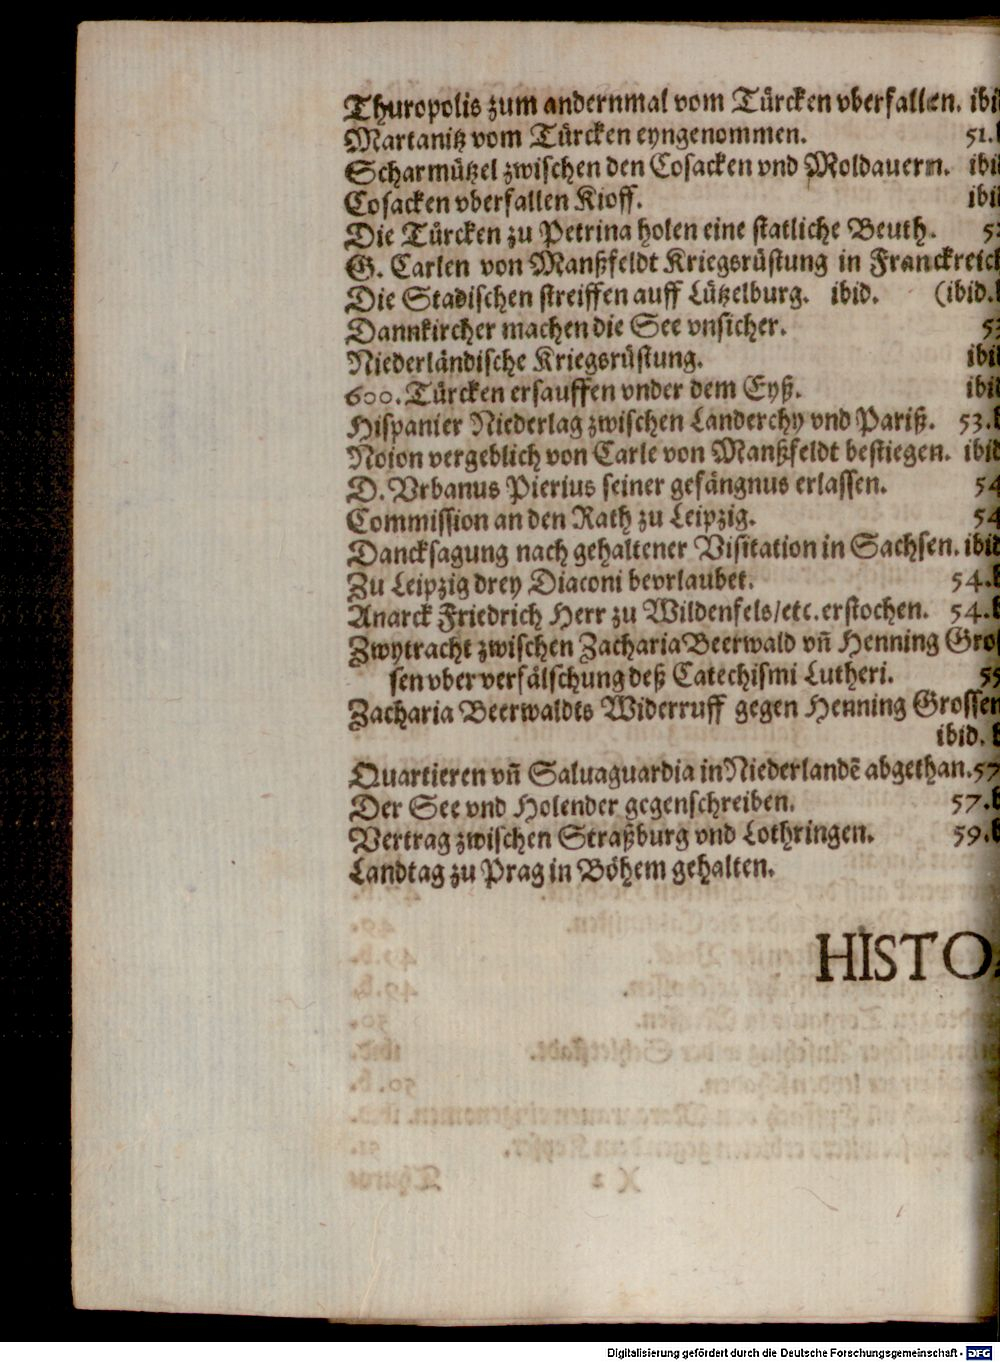 Thuropolis zum andernmal vom Türcken vberfallen. ibi
Martanitz vom Türcken eyngenommen. 51.
Scharmützel zwischen den Cosacken vnd Moldauern. ibi
Cosacken vberfallen Kioff. ibi
Die Türcken zu Petrina holen eine statliche Beuth. 5
G. Carlen von Manßfeldt Kriegsrüstung in Franckreich
Die Stadischen streiffen auff Lützelburg. ibid. (ibid.
Dannkircher machen die See vnsicher. 5
Niederländische Kriegsrüstung. ibi
600. Türcken ersauffen vnder dem Eyß. ibi
Hispanier Niederlag zwischen Landerchy vnd Pariß. 53.
Noion vergeblich von Carle von Manßfeldt bestiegen. ibid
D. Vrbanus Pierius seiner gefängnus erlassen. 54
Commission an den Rath zu Leipzig. 54
Dancksagung nach gehaltener Visitation in Sachsen. ibid
Zu Leipzig drey Diaconi bevrlaubet. 54.
Anarck Friedrich Herr zu Wildenfels/etc. erstochen. 54.
Zwytracht zwischen Zacharia Beerwald vñ Henning Gros
sen vber verfälschung deß Catechismi Lutheri. 55
Zacharia Beerwaldts Widerruff gegen Henning Grossen
ibid.
Quartieren vñ Saluaguardia in Niederlandẽ abgethan. 57
Der See vnd Holender gegenschreiben. 57.
Vertrag zwischen Straßburg vnd Lothringen. 59.
Landtag zu Prag in Böhem gehalten.
HISTO
Digitalisierung gefördert durch die Deutsche Forschungsgemeinschaft - DFG